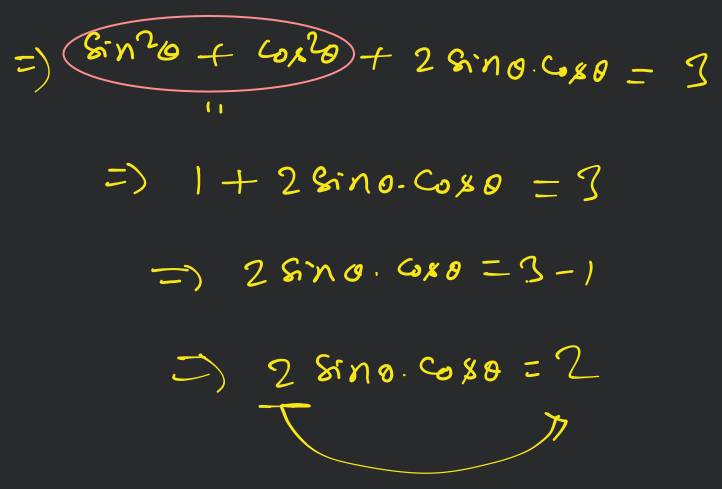 ⇒ sin²θ + cos²θ + 2 sinθ.cosθ = 3
"
⇒ 1 + 2 sinθ.cosθ = 3
⇒ 2 sinθ.cosθ = 3 - 1
⇒ 2 sinθ.cosθ = 2